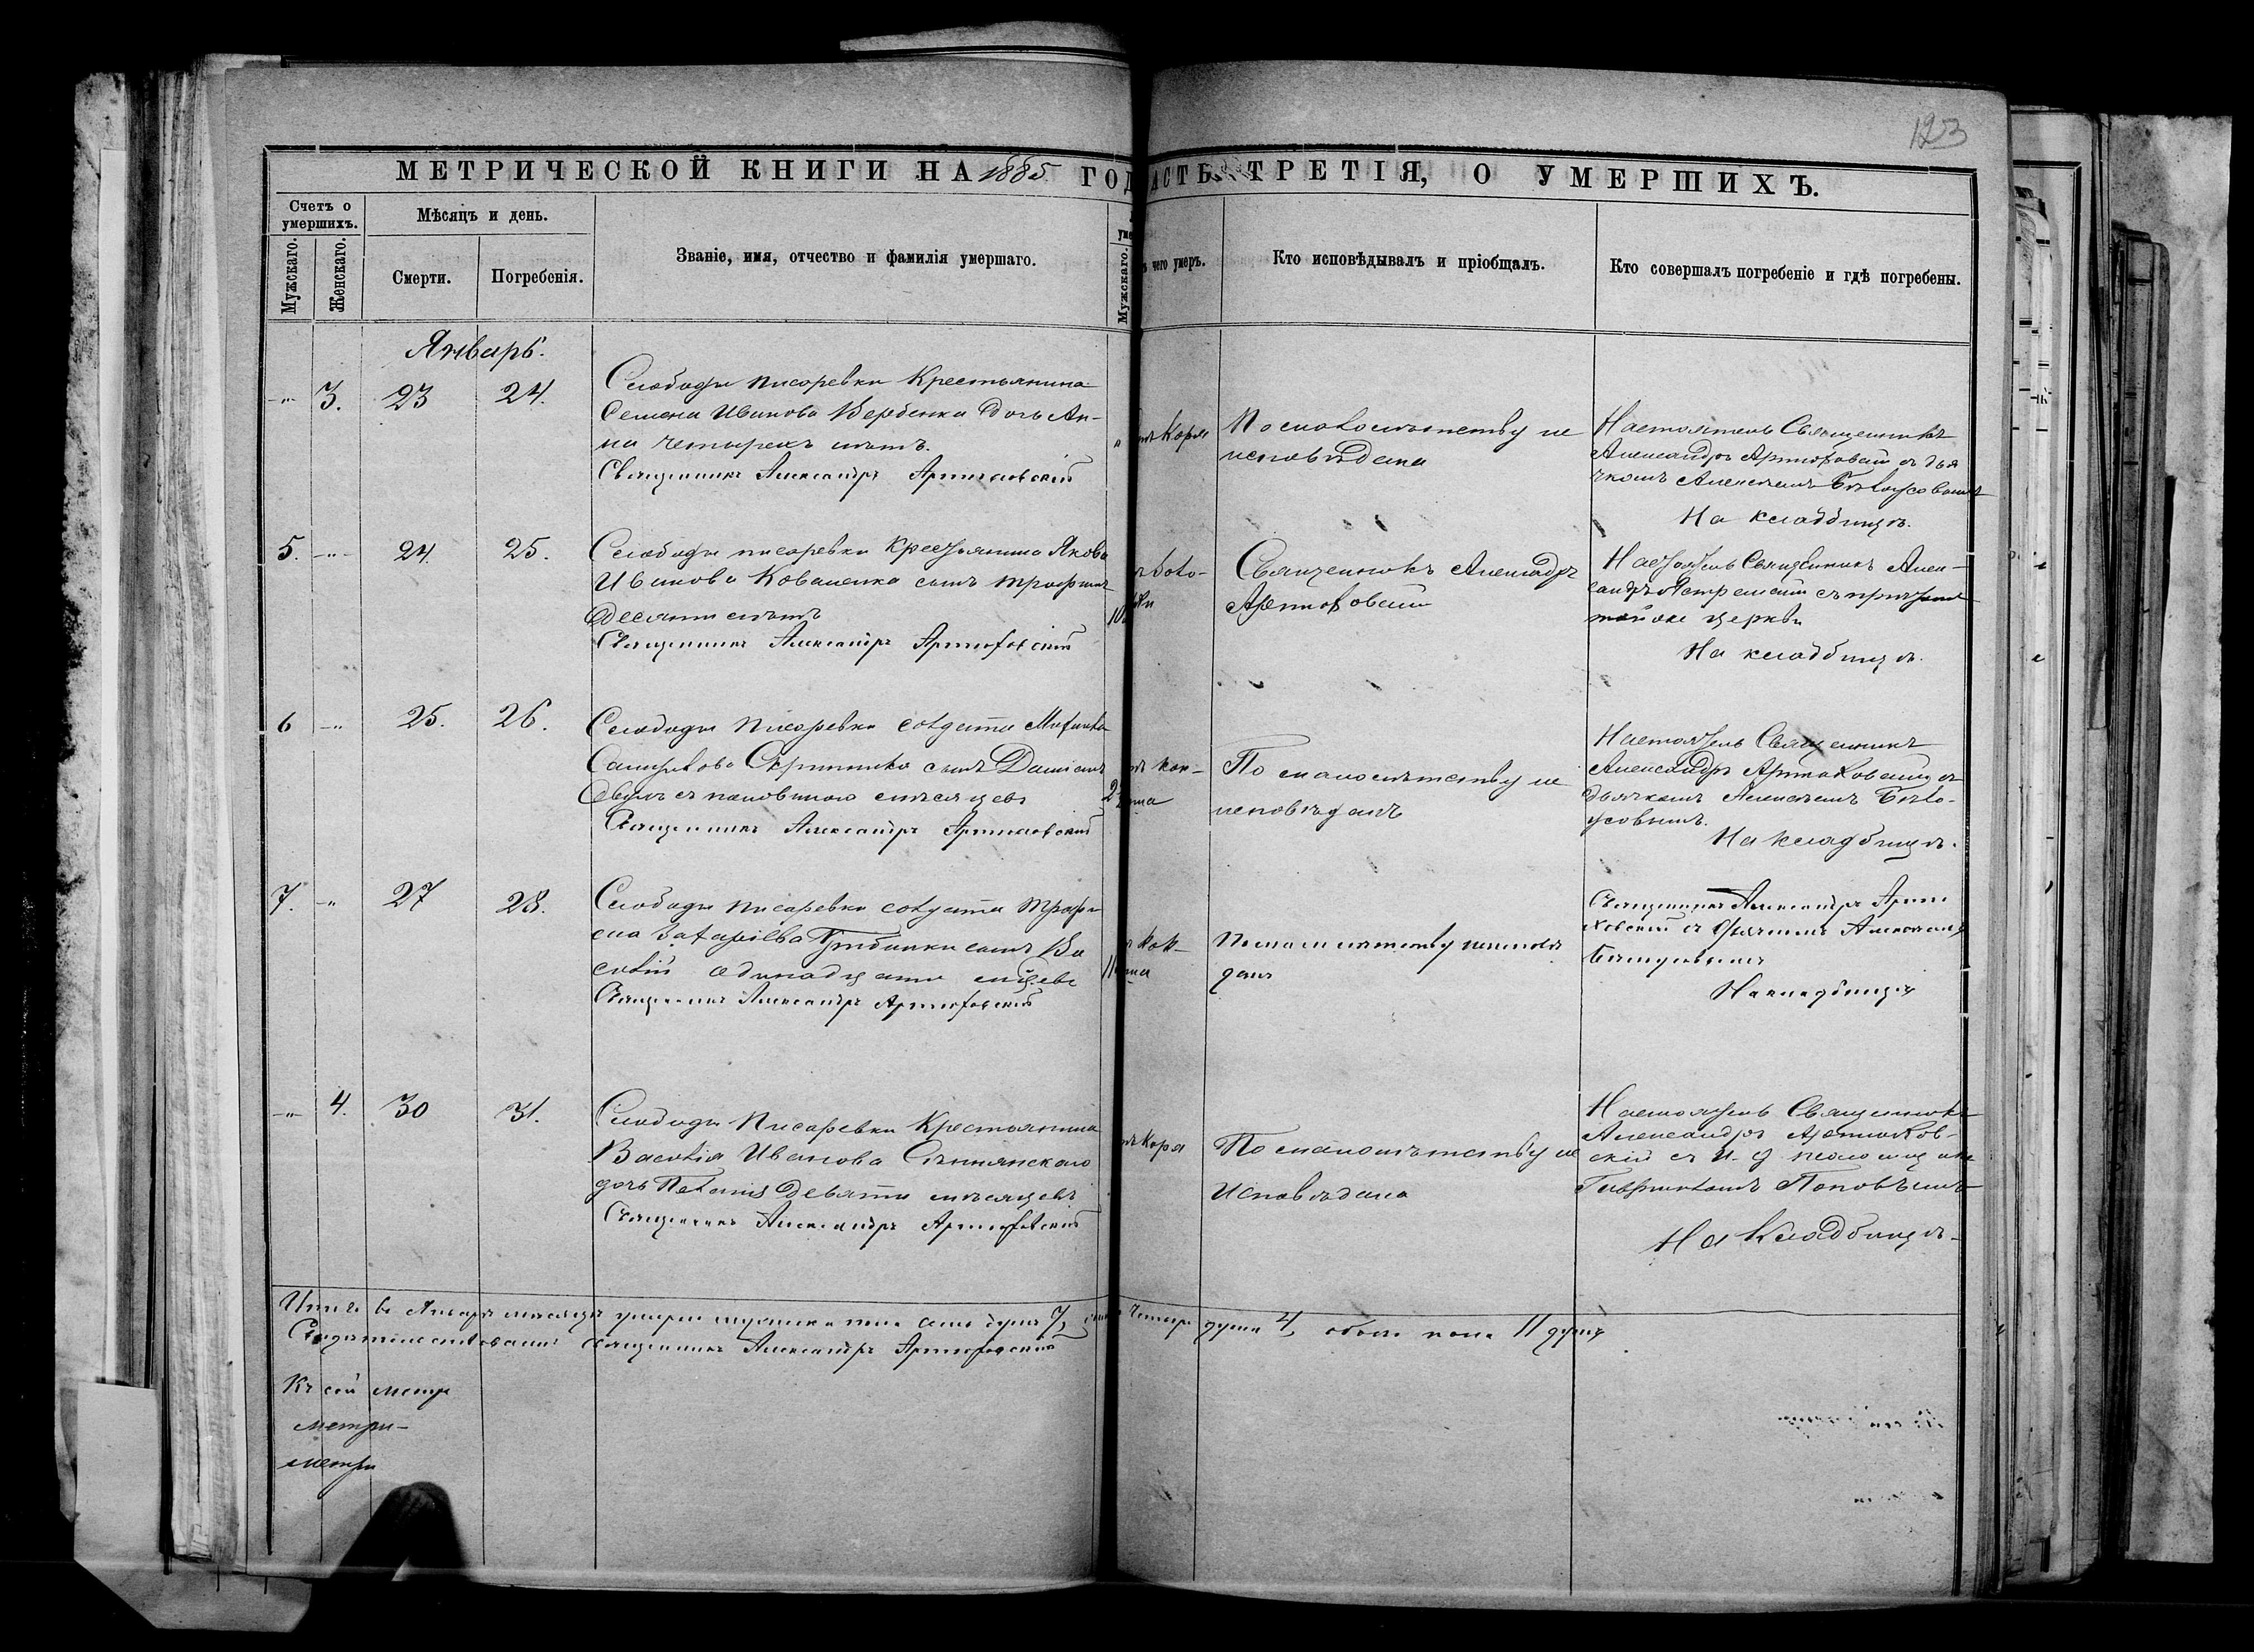 123
МЕТРИЧЕСКОЙ КНИГИ НА 1885 ГОД
АСТЬ ТРЕТІЯ, О УМЕРШИХЪ.
Счетъ о умершихъ.
Мѣсяцъ и день.
Званіе, имя, отчество и фамилія умершаго.
Мужскаго.
Женскаго.
Смерти.
Погребенія.
Мужскаго.
чего умеръ.
Кто исповѣдывалъ и пріобщалъ.
Кто совершалъ погребеніе и гдѣ погребены.
Январь.
-"- 3. 23 24.
Слободы Писаревки Крестьянина
Семена Иванова Вербенка дочь Ан-
на четырехъ лѣтъ.
Священникъ Александръ Артюховскій
Кори
По малолѣтству не
исповѣдана
Настоятель Священникъ
Александръ Артюховскій съ дья
чкомъ Алексѣемъ Бѣлоусовымъ
На кладбищѣ.
5. -"- 24. 25.
Слободы Писаревки Крестьянина Якова
Иванова Коваленка сынъ Трофимъ
десяти лѣтъ
Священникъ Александръ Артюховскій
10
Священникъ Александръ
Артюховскій
Настоятель Священникъ Алек-
сандръ съ
той же церкви
На кладбищѣ.
6 -"- 25. 26.
Слободы Писаревки солдата Михаила
Самуилова сынъ Даміанъ
двухъ съ половиною мѣсяцевъ
Священникъ Александръ Артюховскій
По малолѣтству не
исповѣданъ
Настоятель Священникъ
Александръ Артюховскій съ
дьячкомъ Алексѣемъ Бѣло-
усовымъ.
На кладбищѣ.
7. -"- 27 28.
Слободы Писаревки солдата Трофи
ма Захаріева сынъ Ва
силій одинадцати мѣсяцевъ
Священникъ Александръ Артюховскій
11
По малолѣтству неисповѣ
данъ
Священникъ Александръ Артю
ховскій съ дьячкомъ Алексѣемъ
Бѣлоусовымъ
На кладбищѣ
-"- 4. 30 31.
Слободы Писаревки Крестьянина
Василія Иванова Сѣннянскаго
дочь Пелагія девяти мѣсяцевъ
Священникъ Александръ Артюховскій
Кори
По малолѣтству не
исповѣдана
Настоятель Священникъ
Александръ Артюхов-
скій съ И. д псаломщика
Гавриломъ Поповымъ
На Кладбищѣ.
Итого въ Январѣ мѣсяцѣ умерло мужеска пола семь душъ 7, четыре души 4, обоего пола 11 душъ
Свидѣтельствовалъ Священникъ Александръ Артюховскій
Къ сей метри
метри-
метри